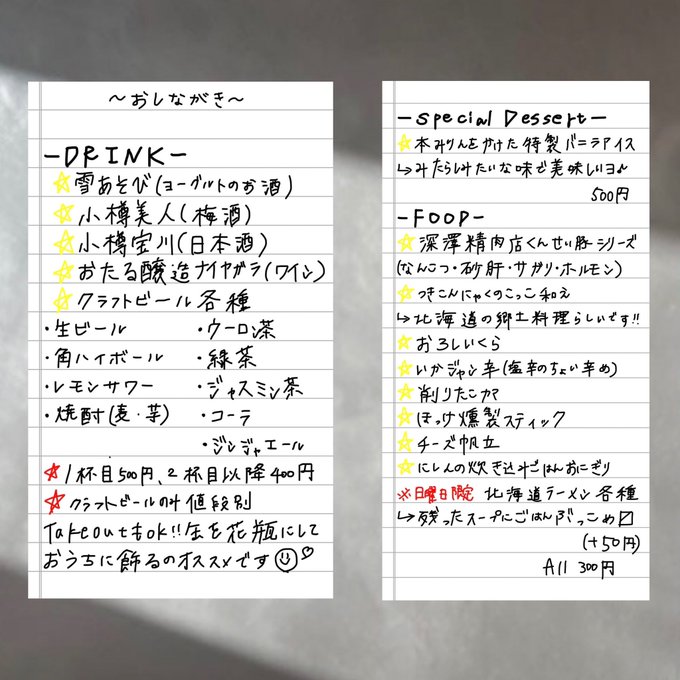 ～おしながき～
ーDRINKー
☆雪あそび(ヨーグルトのお酒)
☆小樽美人(梅酒)
☆小樽宝川(日本酒)
☆おたる醸造ナイヤガラ(ワイン)
☆クラフトビール各種
・生ビール
・角ハイボール
・レモンサワー
・焼酎(麦・芋)
・ウーロン茶
・緑茶
・ジャスミン茶
・コーラ
・ジンジャエール
☆1杯目500円、2杯目以降400円
☆クラフトビールのみ値段別
Takeoutもok!!缶を花瓶にして
おうちに飾るのオススメです☺♡
ーSpecial Dessertー
☆本みりんをかけた特製バニラアイス
↳みたらしみたいな味で美味しいヨ♪
500円
ーFOODー
☆深澤精肉店くんせい豚シリーズ
(なんこつ・砂肝・サガリ・ホルモン)
☆つきこんにゃくのこっこ和え
↳北海道の郷土料理らしいです!!
☆おろしいくら
☆いかジャン辛(塩辛のちょい辛め)
☆削りたこカマ
☆ほっけ燻製スティック
☆チーズ帆立
☆にしんの炊き込みごはんおにぎり
※日曜日限定 北海道ラーメン各種
↳残ったスープにごはんぶっこめ〼
(+50円)
All 300円